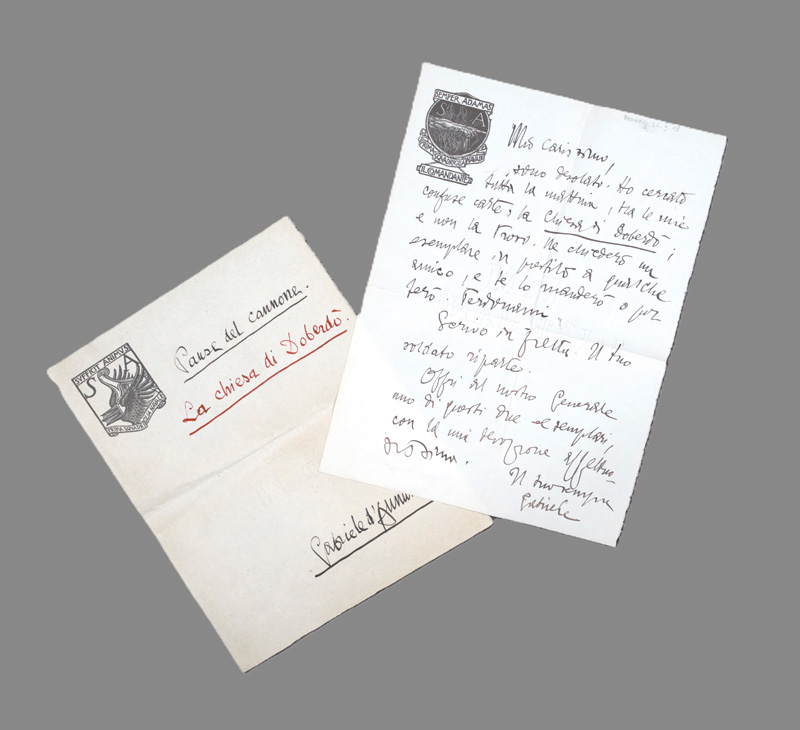 SEMPER ADAMAS
S A
IL COMANDANTE
Mio carissimo,
sono desolato. Ho cercato
tutta la mattina, tra le mie
confuse carte, la Chiesa di Doberdò;
e non la trovo. Ne chiederò un
esemplare, in prestito a qualche
amico, e te lo manderò o por
terò.
Scrivo in fretta. Il tuo
soldato riparte.
Offri al nostro Generale
uno di questi due esemplari,
con la mia devozione affettuo-
sissima.
Il tuo sempre
Gabriele
SVFFICIT ANIMVS
S A
Pausa del cannone.
La chiesa di Doberdò.
Gabriele d'Annun